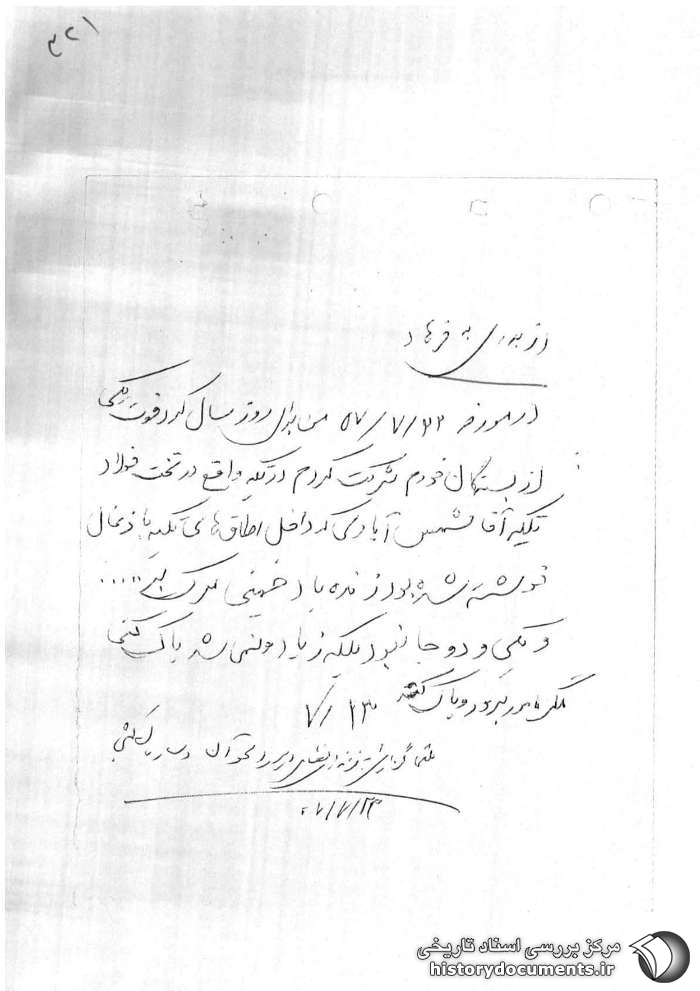 ۳۲۱
از به فرهاد
در مورخه ۵۷/۷/۲۲ من برای روز سال گرد فوت یکی
از بستگان خودم شرکت کردم در تکیه واقع در تخت فولاد
تکیه آقا شمس آبادی که داخل اطاق‌های تکیه با ذغال
نوشته شده بود زنده باد خمینی مرگ بر .....
و یکی و دو جا نبود بلکه زیاد و نمی شد پاک کنی
و پاک کند
۷/۲۳
۷/۲۳
مرکز بررسی اسناد تاریخی
historydocuments.ir